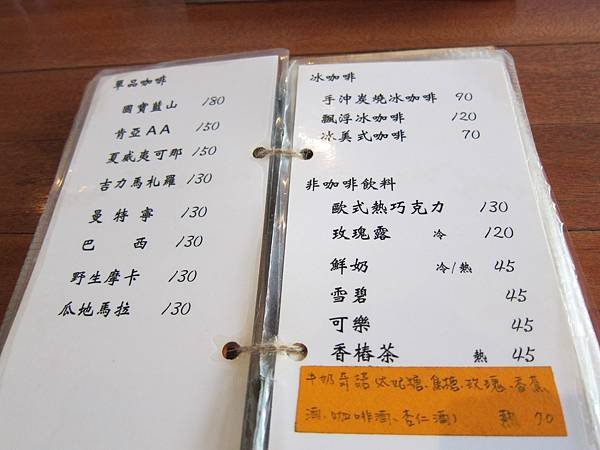 單品咖啡
國寶藍山 180
肯亞AA 150
夏威夷可那 150
吉力馬札羅 130
曼特寧 130
巴西 130
野生摩卡 130
瓜地馬拉 130
冰咖啡
手沖炭燒冰咖啡 90
飄浮冰咖啡 120
冰美式咖啡 70
非咖啡飲料
歐式熱巧克力 130
玫瑰露 冷 120
鮮奶 冷/熱 45
雪碧 45
可樂 45
香椿茶 熱 45
牛奶奇諾(太妃糖、焦糖、玫瑰、香蕉
酒、咖啡酒、杏仁酒) 熱 70